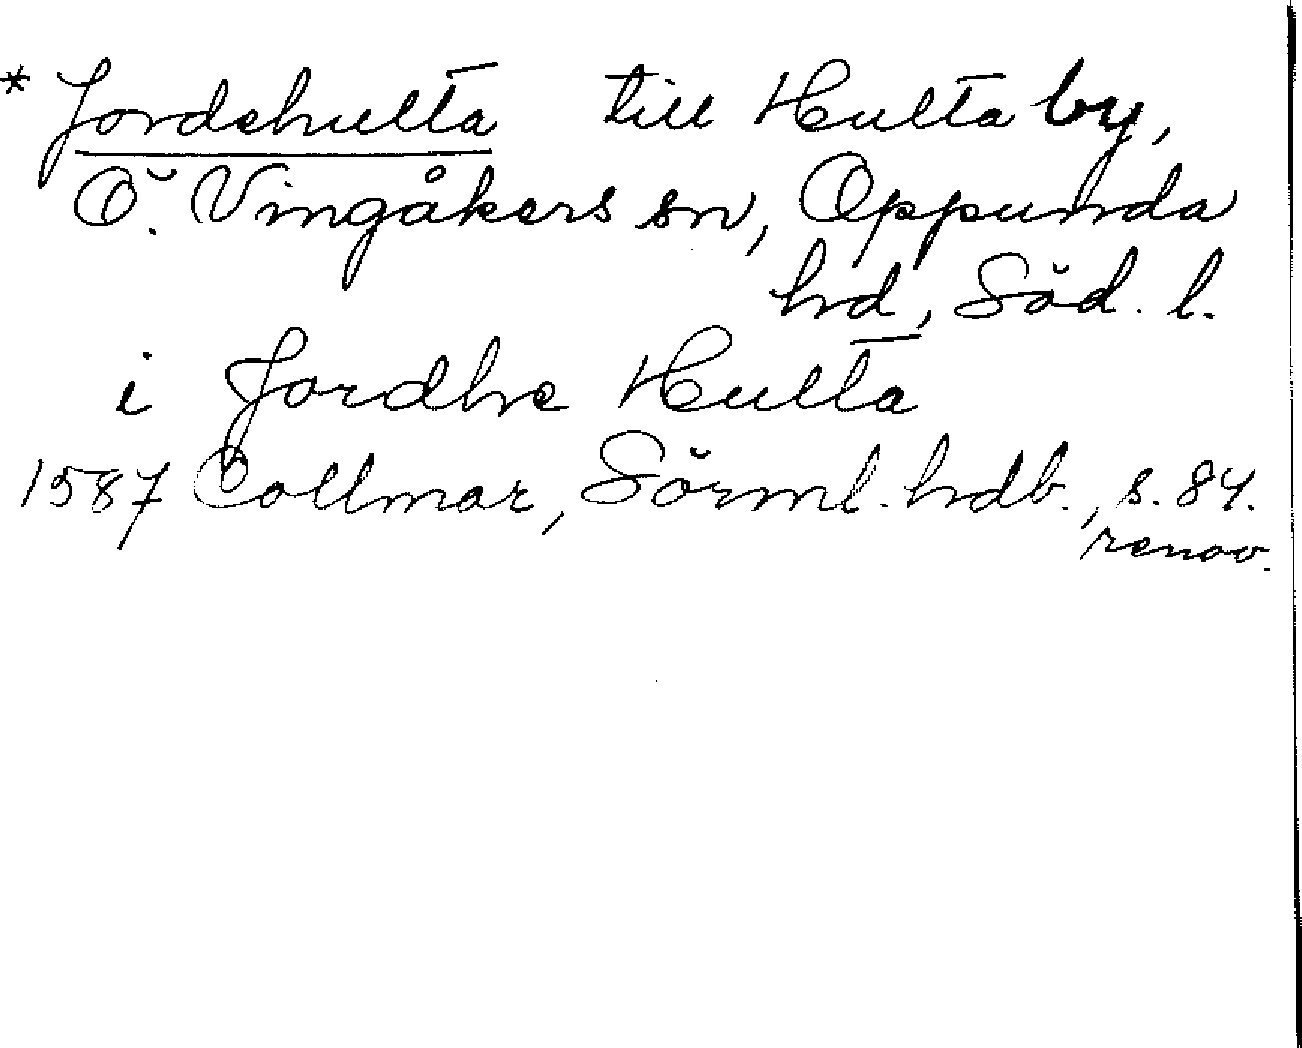 * Jordehulta till Hulta by,
Ö. Vingåkers sn, Oppunda
hd, Söd. l.
i Jordhe Hulta
1587 Collmar, Sörml. hdb., s. 84.
renov.